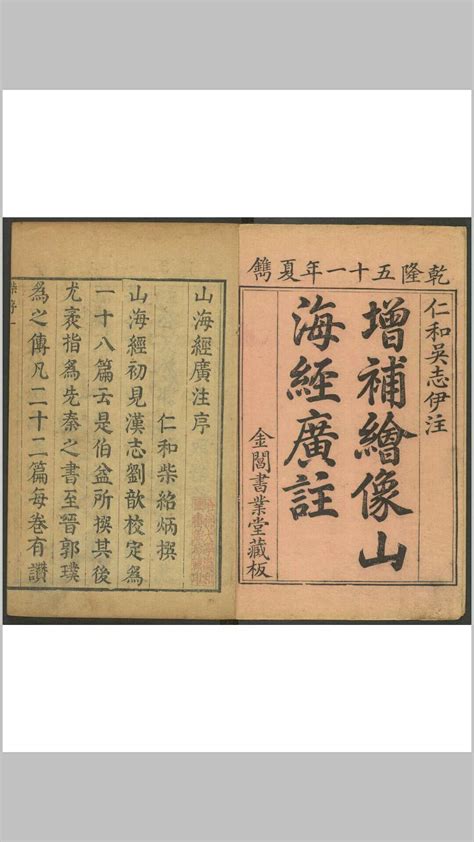 乾隆五十一年夏鐫
仁和吳志伊注
增補繪像山
海經廣註
金閶書業堂藏板
山海經廣注序
仁和柴紹炳撰
山海經初見漢志劉歆校定為
一十八篇云是伯益所撰其後
尤袤指為先秦之書至晉郭璞
為之傳凡二十二篇每卷有讚
柴序一